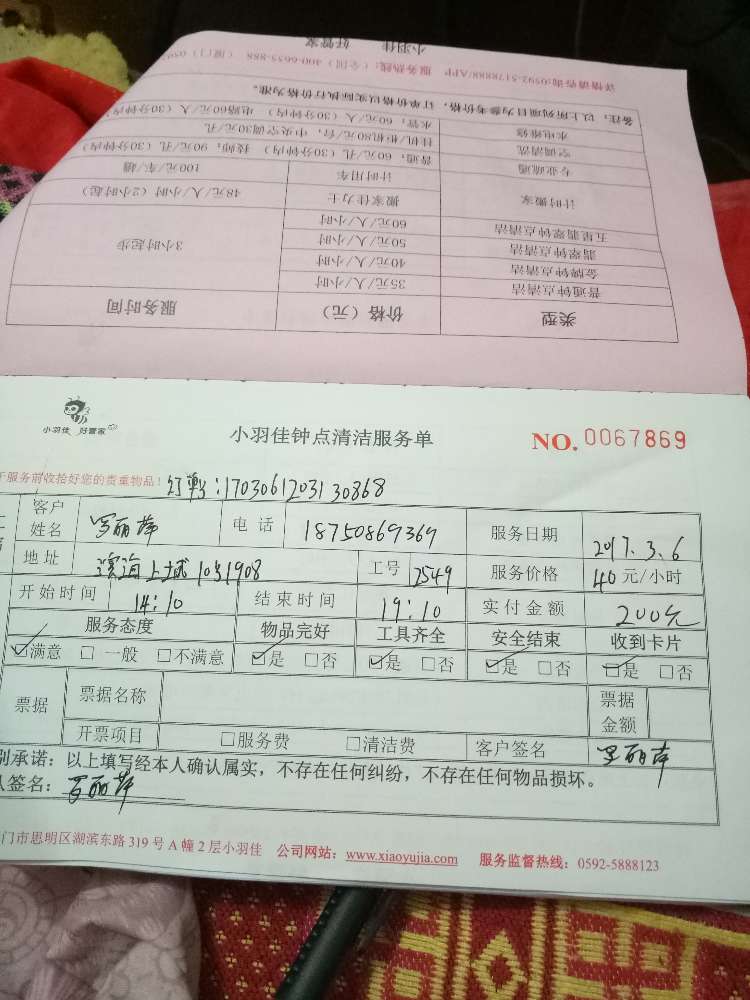 小羽佳 好管家
详情请咨询:0592-5178888/APP 服务热线:(全国) 400-6655-888 (厦门) 059
类型 价格(元) 服务时间
普通钟点清洁 35元/人/小时 3小时起步
金牌钟点清洁 40元/人/小时
翡翠钟点清洁 50元/人/小时
五星翡翠钟点清洁 60元/人/小时
计时搬家 搬家佳力士 48元/人/小时 (2小时起)
计时用车 100元/车/趟
专业疏通 普通:60元/孔 (30分钟内) 技师:90元/孔 (30分钟内)
空调清洗 挂机/柜机90元/台,中央空调30元/孔
水电维修 水管:60元/人 (30分钟内) 电路60元/人 (30分钟内)
备注:以上所列项目为参考价格,订单价格以实际执行价格为准。
小羽佳 好管家
小羽佳钟点清洁服务单
NO. 0067869
服务前收拾好您的贵重物品!
订单:17030612031 30868
客户姓名 罗丽萍 电话 18750869369 服务日期 2017.3.6
地址 10号1908 工号 2549 服务价格 40元/小时
开始时间 14:10 结束时间 19:10 实付金额 200元
服务态度 物品完好 工具齐全 安全结束 收到卡片
☑满意 □一般 □不满意 ☑是 □否 ☑是 □否 ☑是 □否 ☑是 □否
票据 票据名称 票据金额
开票项目 □服务费 □清洁费 客户签名 罗丽萍
别承诺:以上填写经本人确认属实,不存在任何纠纷,不存在任何物品损坏。
人签名:罗丽萍
门市思明区湖滨东路319号A幢2层小羽佳 公司网站:www.xiaoyujia.com 服务监督热线:0592-5888123